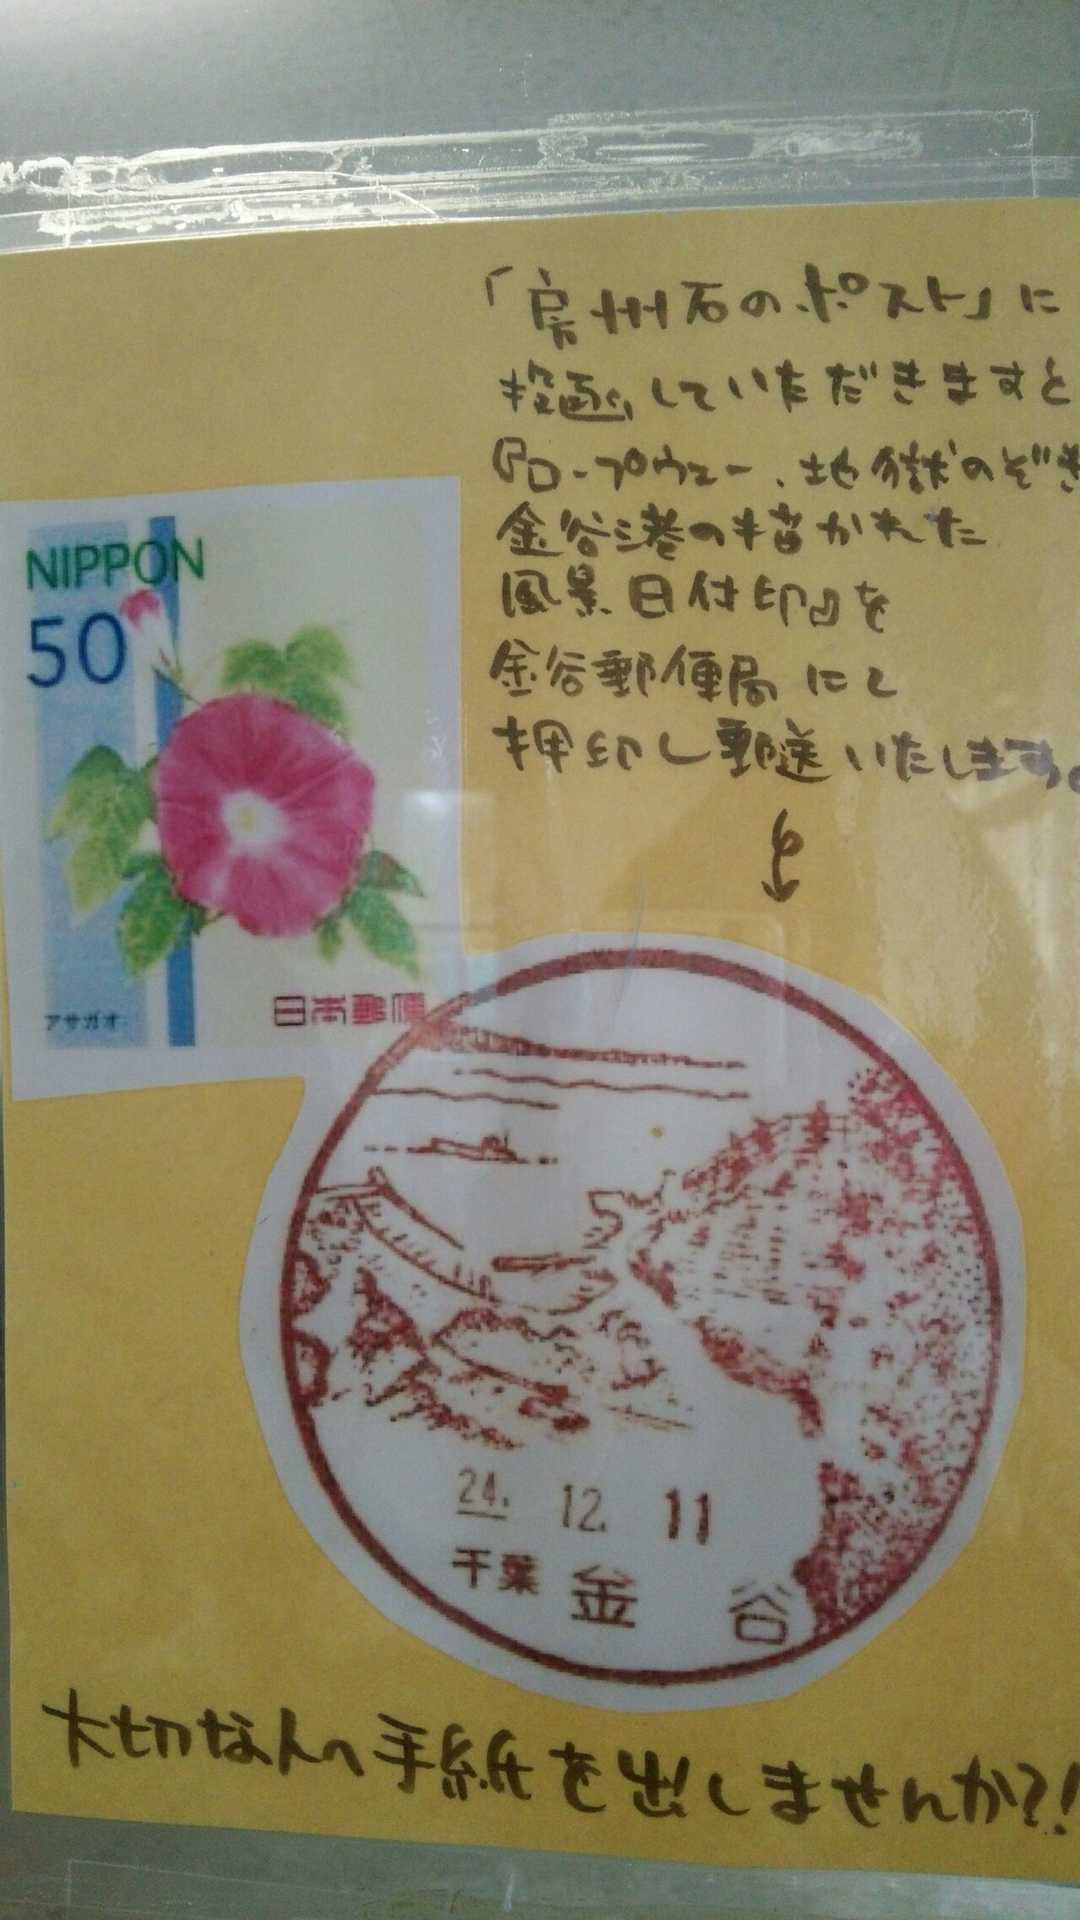 「房州石のポスト」に
投函していただきますと
『ロープウェー、地獄のぞき
金谷港の描かれた
風景日付印』を
金谷郵便局にて
押印し郵送いたします。
NIPPON
50
アサガオ
日本郵便
24. 12. 11
千葉 金谷
大切な人へ手紙を出しませんか?!